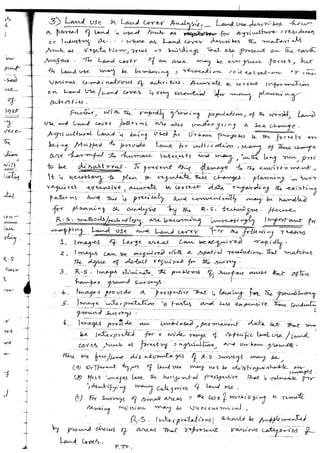 3) Land use & Land Cover Analysis:- Land use describes how
a parcel of land is used such as for agriculture, residences
or Industry &c. where as Land cover describes the materials
such as vegetation, rocks or buildings that are present on the earth
surface. The Land cover of an area may be evergreen forest, but
the land use may be lumbering, recreation, oil extraction or
various combinations of activities. Accurate & current information
on Land use / Land cover is very essential for many planning
activities.
Further, with the rapidly growing population, of the world, Land
use and Land cover patterns are also undergoing a sea change.
Agricultural Land is being used for Urban purposes & the forests are
being stripped to provide land for cultivation. Many of these changes
are harmful to human interests and may, in the long run, prove
to be disastrous. To prevent this damage to the environment,
it is necessary to plan or regulate the changes. Planning in turn
requires extensive, accurate & correct data regarding the existing
patterns and this is precisely and conveniently may be handled
for planning the analysis by the R.S. technique. Hence
R.S. methods/technology are becoming increasingly important for
mapping Land use and Land cover for the following reasons
1. Images of large areas can be acquired rapidly.
2. Images can be acquired with a spatial resolution that matches
the degree of detail required for the survey.
3. R.S. images eliminate the problems of surface access that often
hamper ground surveys.
4. Images provide a perspective that is lacking for the ground survey
5. Image interpretation is faster and less expensive than conducting
ground surveys.
6. Images provide an unbiased, permanent data set that may
be interpreted for a wide range of specific land use / land
cover, such as forestry, agriculture, and urban growth.
There are few/some disadvantages of R.S. surveys may be:
(a) Different types of land use may not be distinguishable on
images
(b) Most images lack the horizontal perspective that is valuable for
identifying many categories of land use.
(c) For surveys of small areas the cost of mobilizing a remote
sensing mission may be uneconomical.
R.S. Interpretations should be supplemented
by ground checks of areas that represent various categories of
Land covers.
P.T.O.